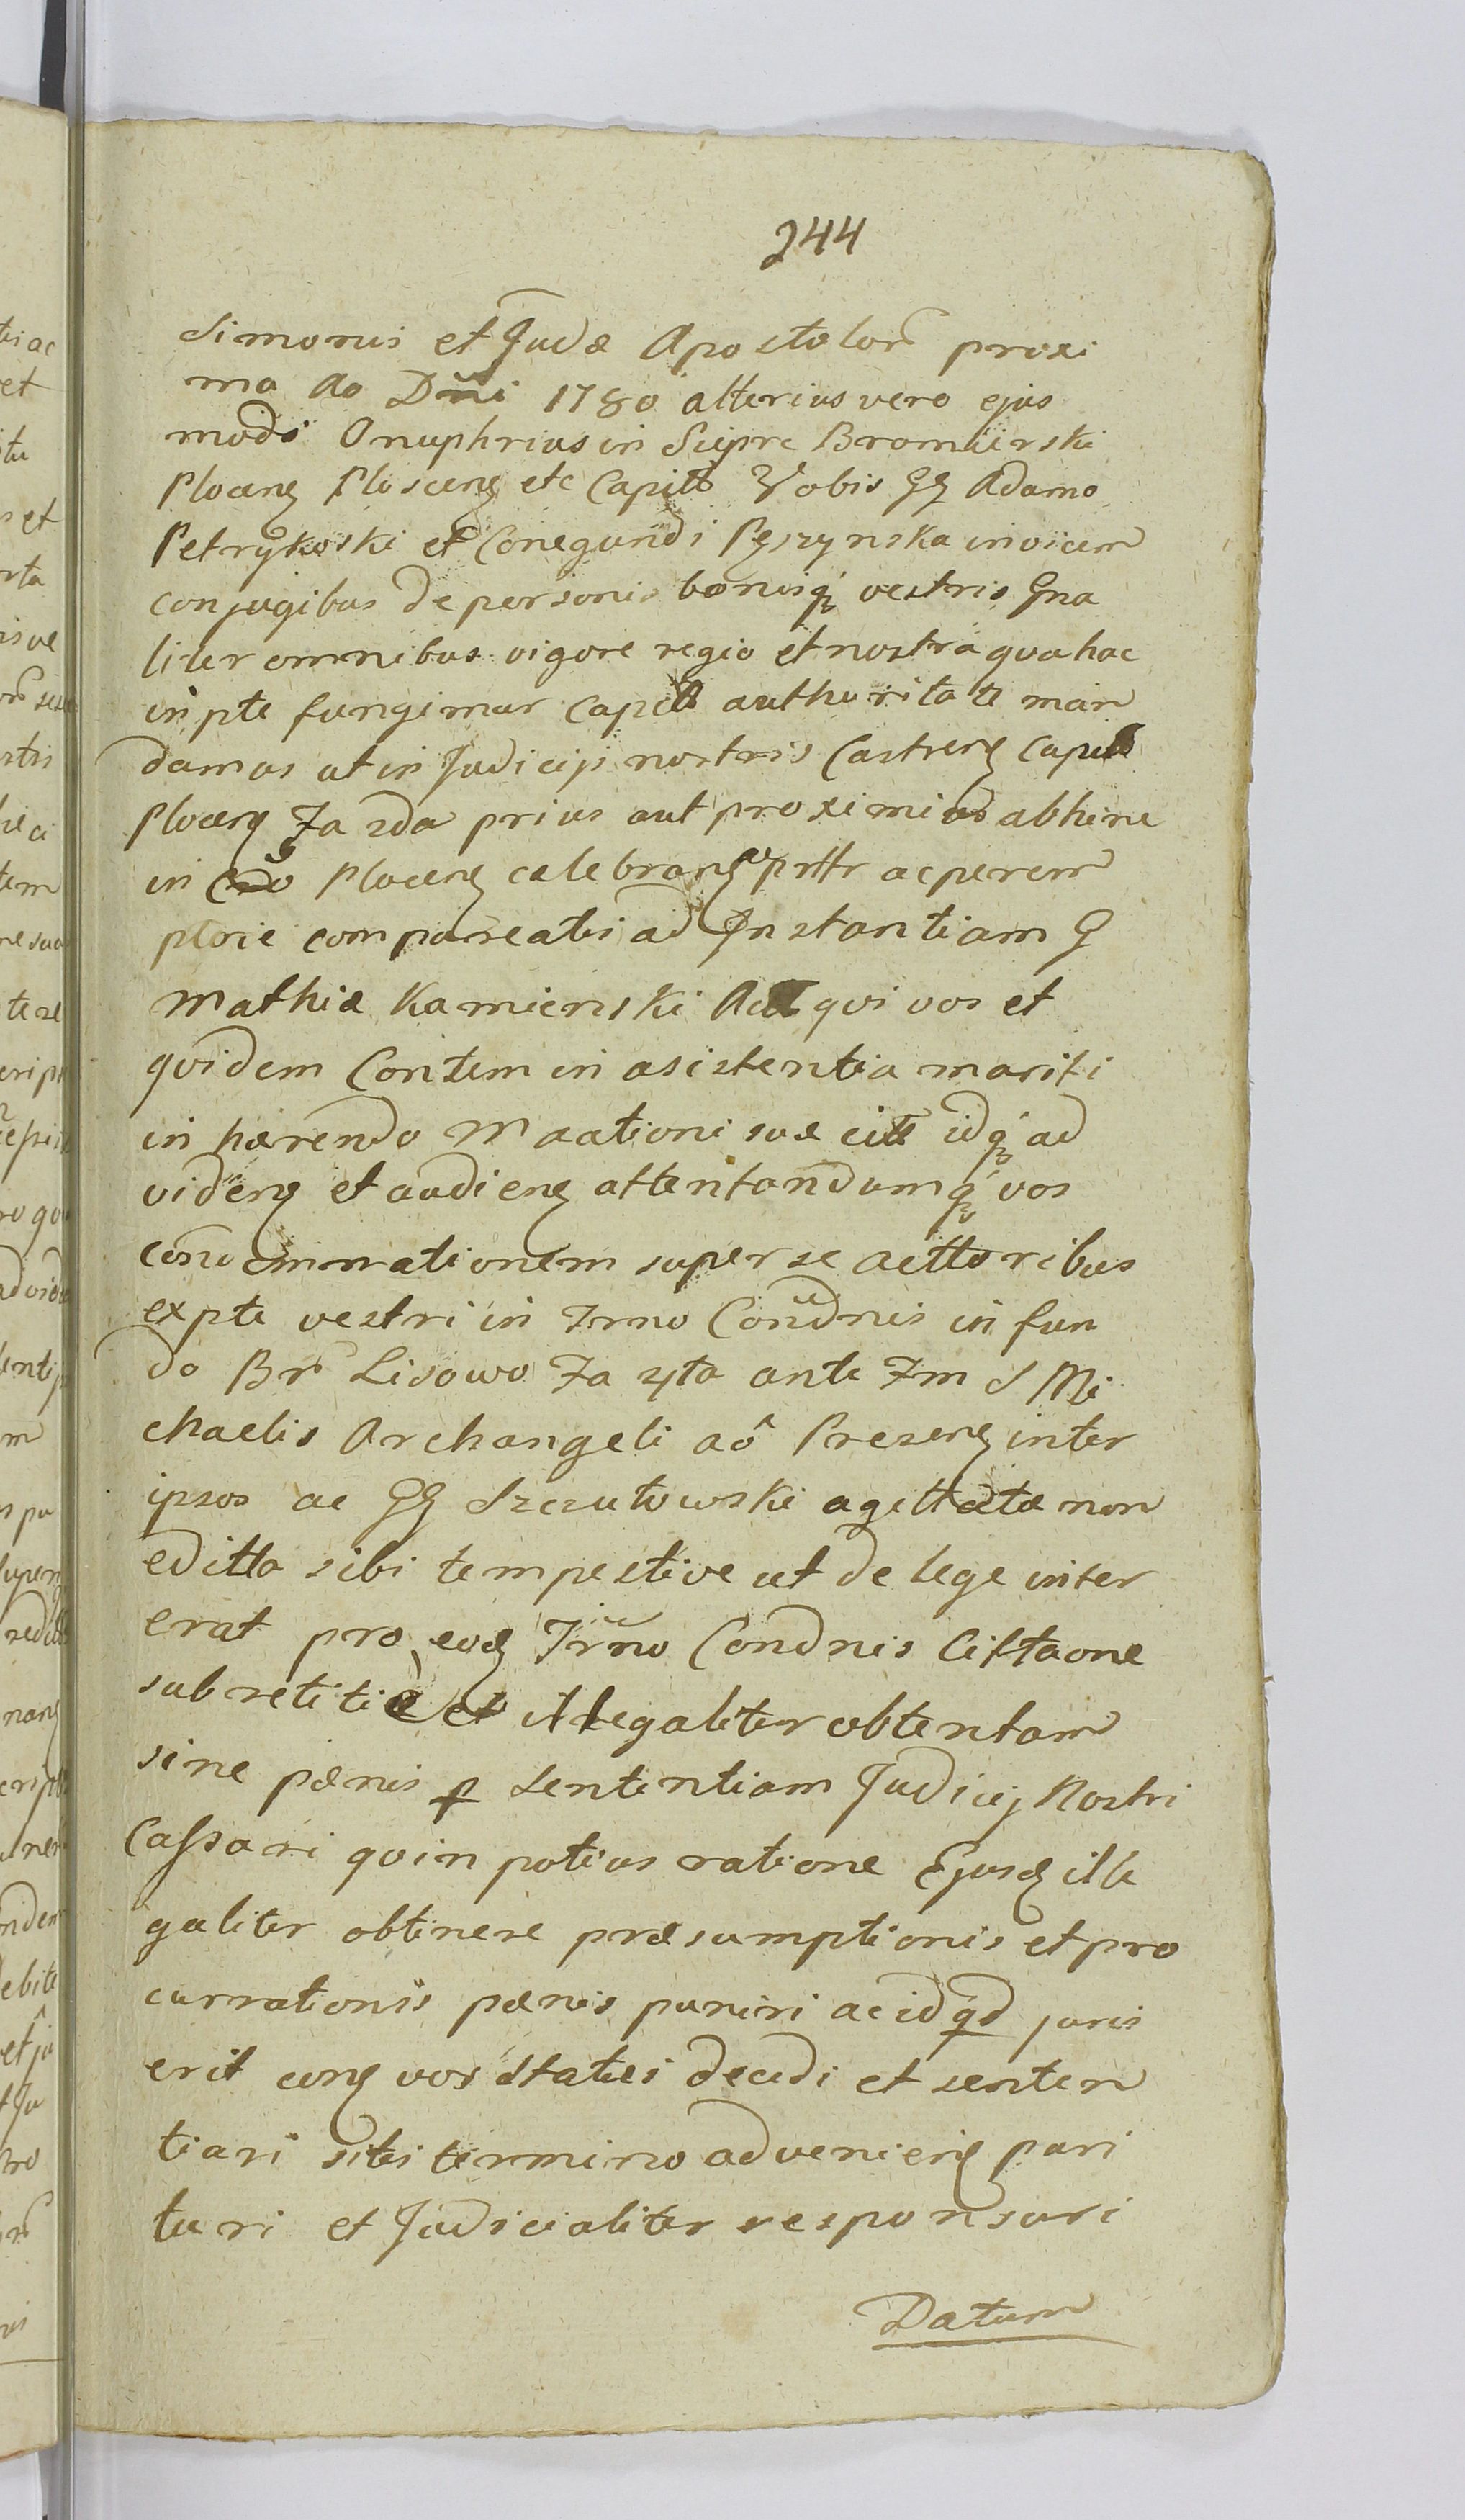 244
Simonis et Judæ Apostolor̃ proxi
ma Ao Dñi 1780 alterius vero ejus
modi Onuphrius in Sieprc Bromierski
Plocen͂ Ploscen͂ etc Capitt Vobis GG Adamo
Petrykoski et Conegundi Pęszynska invicem
conjugibus de personis bonisq́ vestris Gna
liter omnibus vigore regio et nostra qua hac
in pte fungimur Capitt authoritate man
damus ut in Judicijs nostris Castren͂ Capitt
Plocen͂ Fa 2da prius aut proximius abhinc
in Cõ Plocen͂ celebran͂ prttr ac perem
ptorie compareatis ad Instantiam G
Mathiæ Kamienski Act qui vos et
quidem Contem in asistentia mariti
in hærendo Maationi suæ citt idq́ ad
viden͂ et audien͂ attentandumq́ vos
condemnationem super se acttoribus
ex pte vestri in Trno Condnis in fun
do Br̃ Lisowo Fa 4ta ante Fm S Mi
chaelis Archangeli aô Presen͂ inter
ipsos ac GG Szczutowski agittata non
editta sibi tempestive ut de lege inter
erat pro eod Tr̃no Condnis Cittaone
subretitiè et illegaliter obtentam
sine pænis p Sententiam Judicij Nostri
Cassari quin potius ratione Ejusd ille
galiter obtinere præsumptionis et pro
currationis pænis puniri ac id qd juris
erit con͂ vos Statui decidi et senten
tiari sitis termino advenien͂ pari
turi et Judicialiter responsuri
Datum